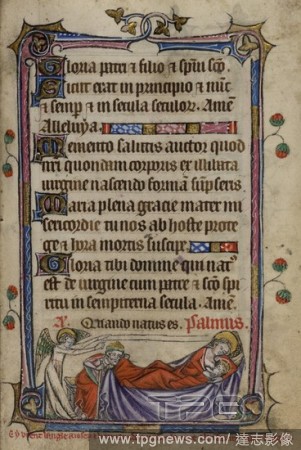 Gloria patri et filio et spiui sco.
Sicut erat in principio et nuc
et semp et in secula seculor. Amē
Alleluya.
Memento salutis auctor quod
nri quondam corporis ex illibata
uirgine nascendo formā sūpseris.
Maria plena gracie mater mi
sericordie tu nos ab hoste prote
ge et hora mortis suscipe.
Gloria tibi domine qui nat
est de uirgine cum patre et sco spi
ritu in sempiterna secula. Amē.
A. Quando natus es. Psalmus.
TPG
www.tpgnews.com/ 達志影像